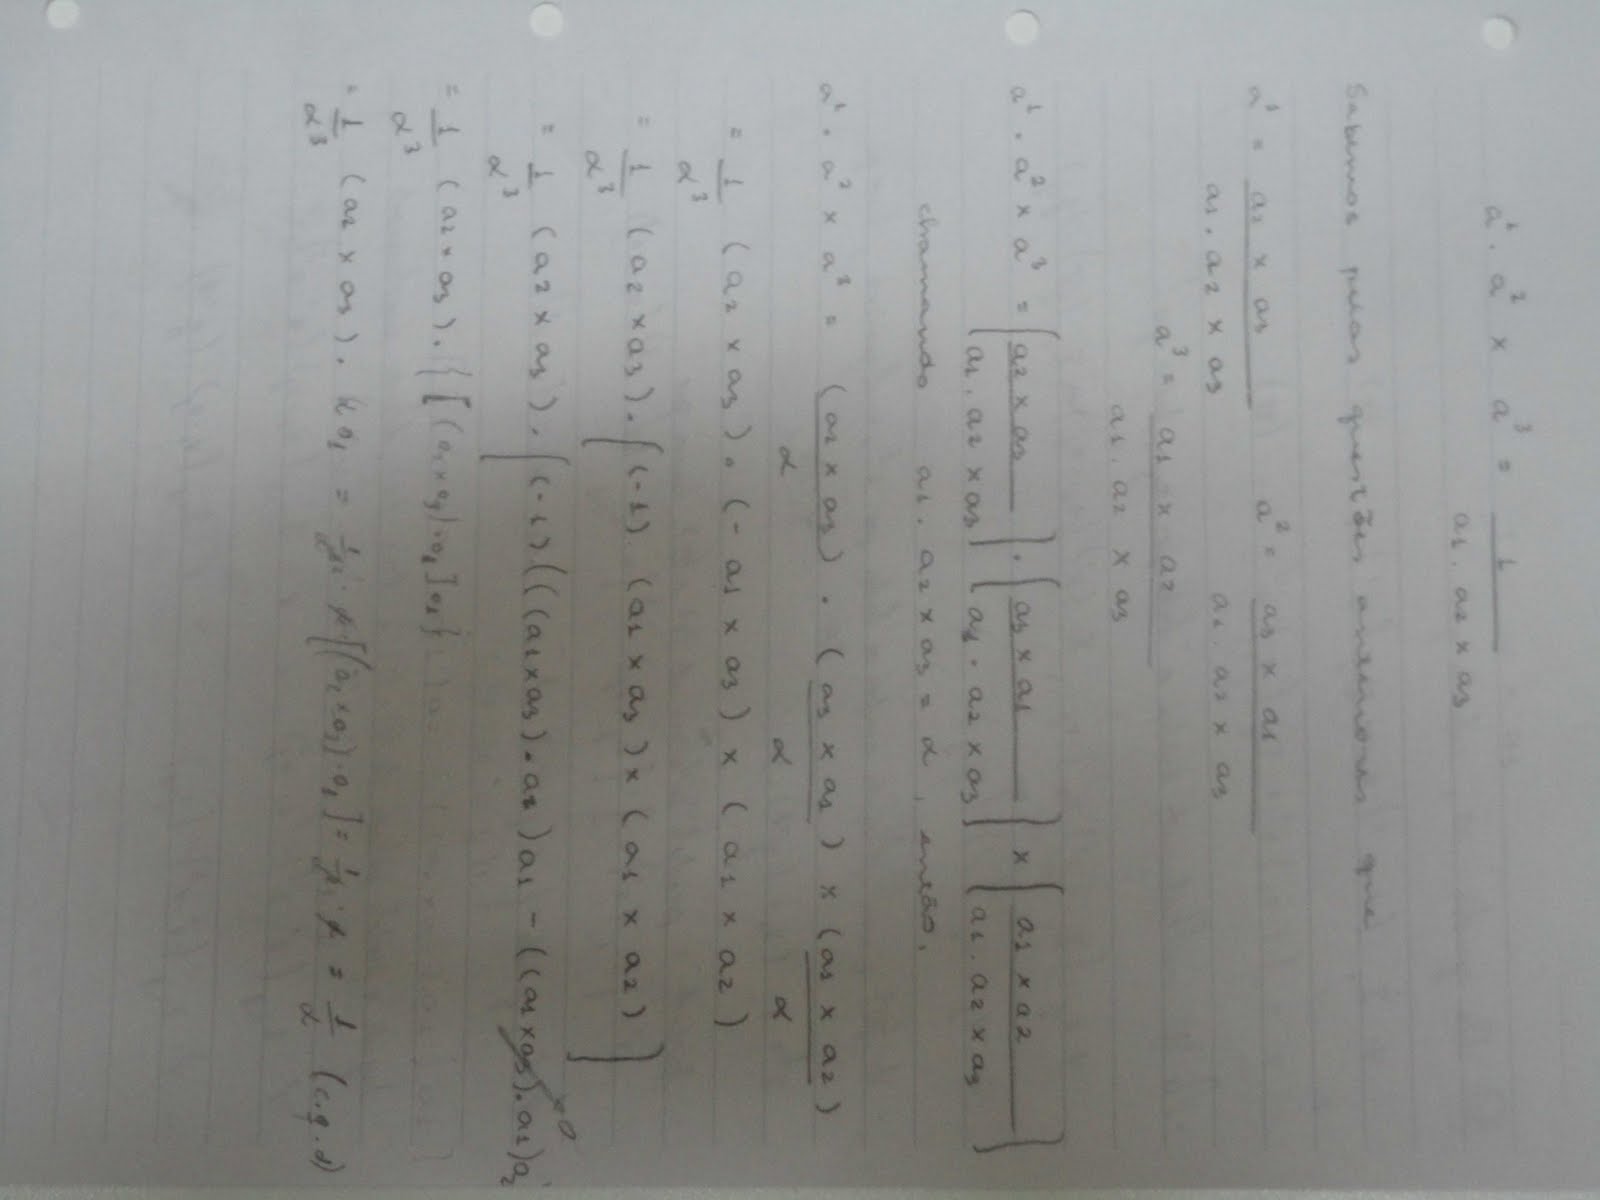 a¹ . a² x a³ = 1 / a1 . a2 x a3
Sabemos pelas questões anteriores que
a¹ = a2 x a3 / a1 . a2 x a3   a² = a3 x a1 / a1 . a2 x a3
a³ = a1 x a2 / a1 . a2 x a3
a¹ . a² x a³ = [a2 x a3 / a1 . a2 x a3] . [a3 x a1 / a1 . a2 x a3] x [a1 x a2 / a1 . a2 x a3]
chamando a1 . a2 x a3 = α, então,
a¹ . a² x a³ = (a2 x a3) / α . (a3 x a1) / α x (a1 x a2) / α
= 1/α³ (a2 x a3) . (- a1 x a3) x (a1 x a2)
= 1/α³ (a2 x a3) . [(-1) (a1 x a3) x (a1 x a2)]
= 1/α³ (a2 x a3) . [(-1) . (((a1 x a3) . a2) a1 - ((a1 x a3) . a1) a2
= 0
= 1/α³ (a2 x a3) . {[(a1 x a3) . a2] a1}
= 1/α³ (a2 x a3) . a1 = (c.q.d)